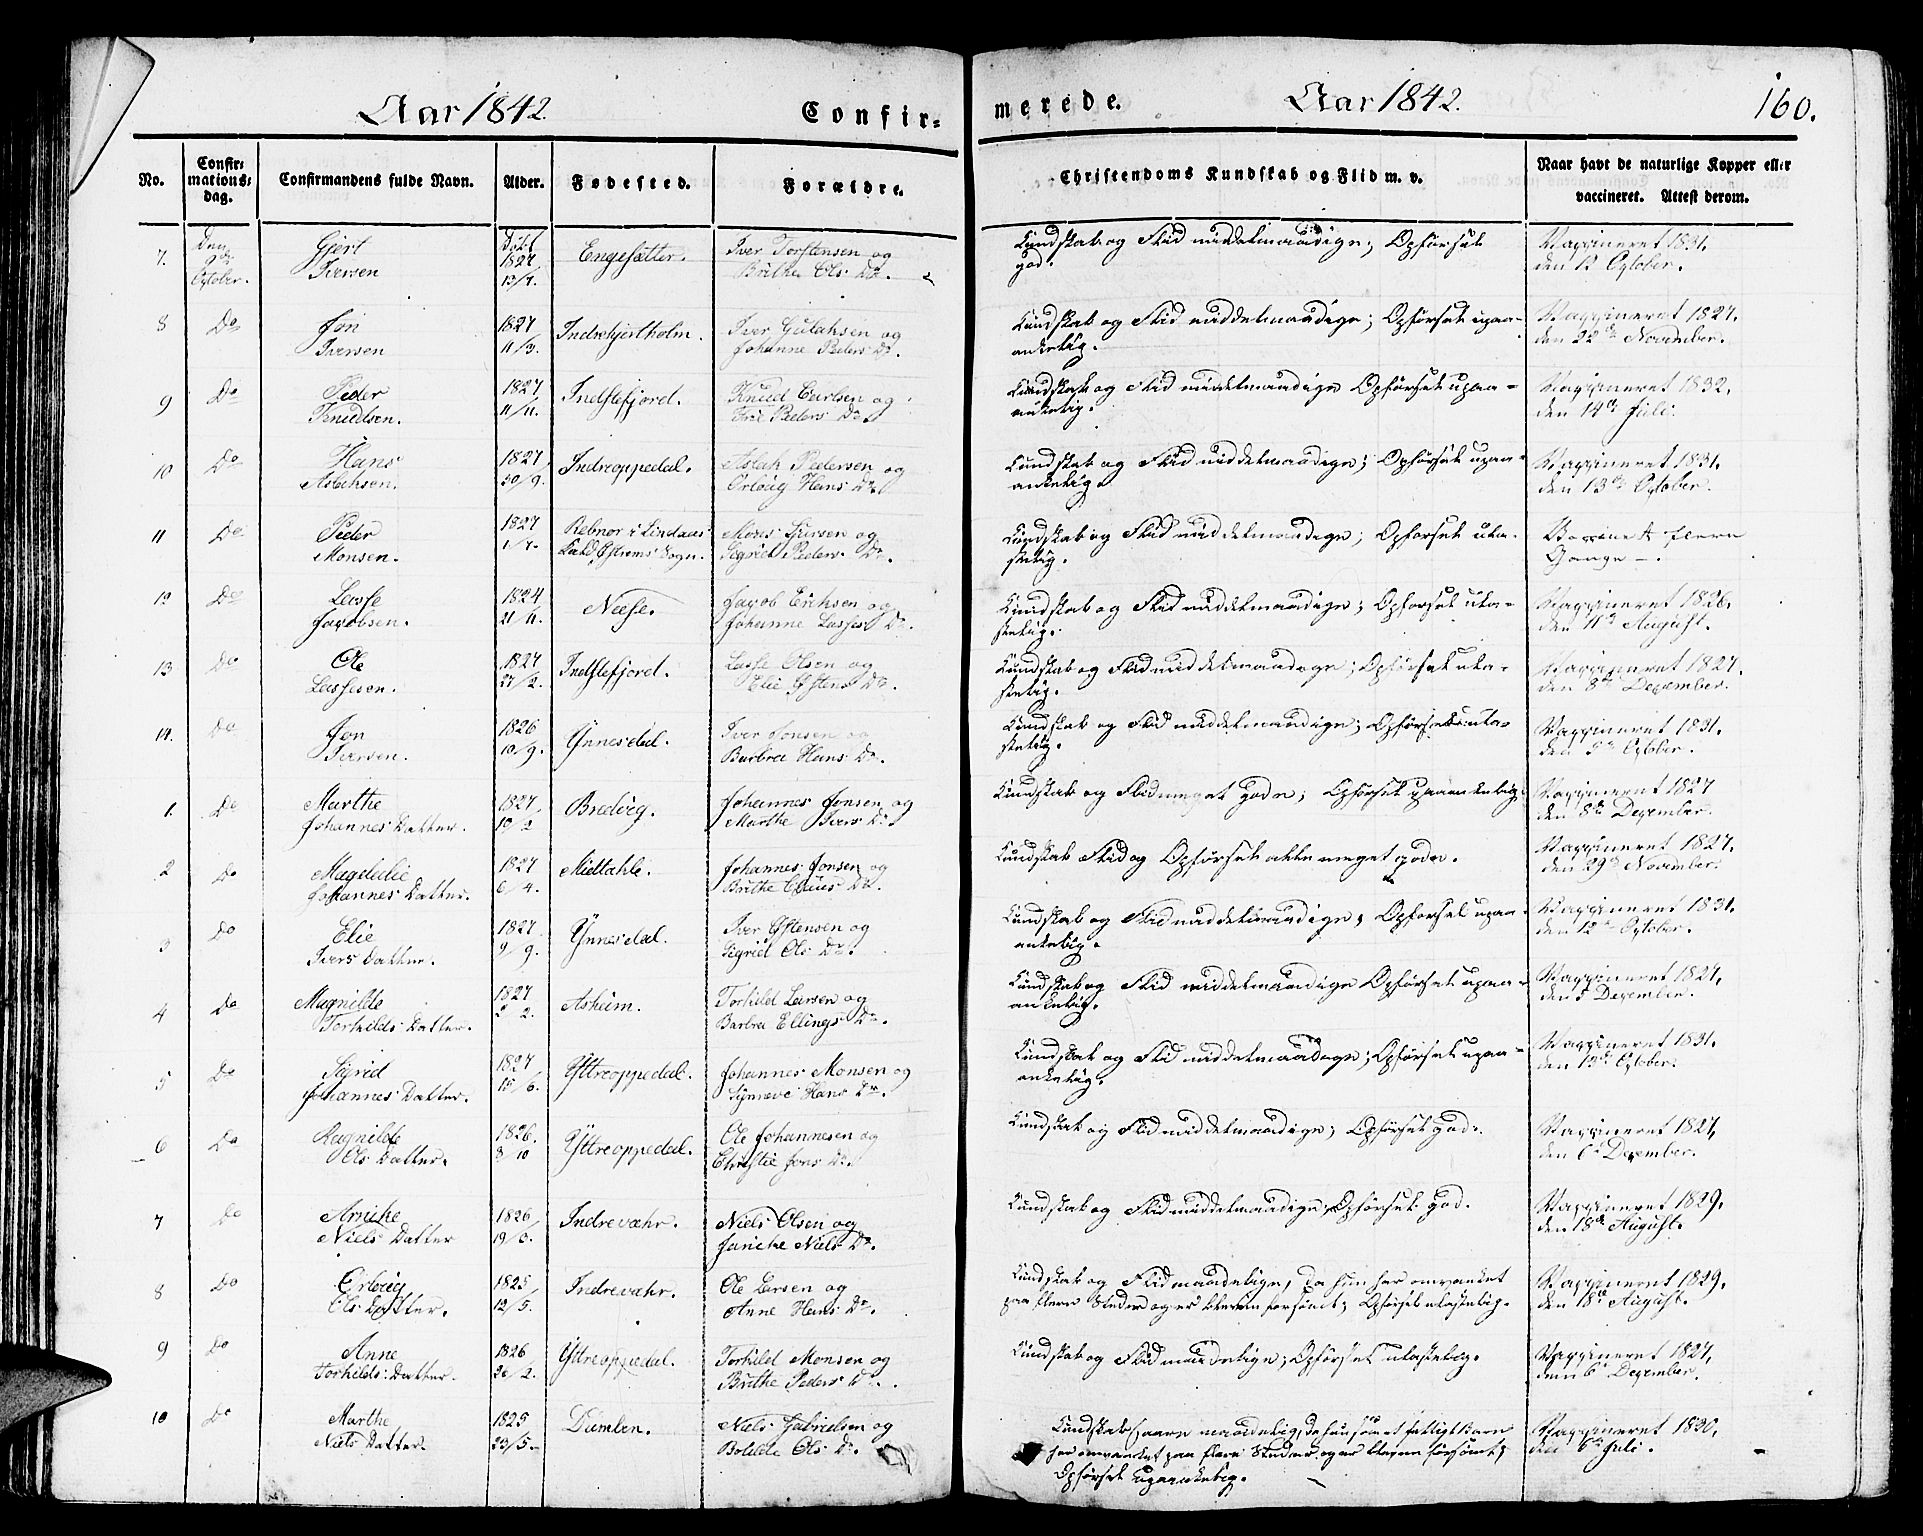 Aar 1842.
Confir=
merede.
Aar 1842.
160.
No.
Confir=
mations=
dag.
Confirmandens fulde Navn.
Alder.
Fødested.
Forældre.
Christendoms Kundskab og Flid m. v.
Naar havt de naturlige Kopper eller
vaccineret. Attest derom.
7. Den 9de October. Gjert Iversen 1827 13/7. Engesætter. Iver Torstensen og Brithe Ols Dr. Kundskab og Flid middelmaadige; Opførsel god. Vaccineret 1831, den 12 October.
8 Do Jon Iversen 1827 11/3. Indrehjertholm. Iver Gulaksen og Johanne Peders Dr. Kundskab og Flid middelmaadige; Opførsel upaaankelig. Vaccineret 1827. den 22de November.
9 Do Peder Knudsen. 1827 11/11. Indstefjord. Knud Carlsen og Peders Dr. Kundskab og Flid middelmaadige Opførsel upaa=ankelig. Vaccineret 1832, den 14de Juli.
10 Do Hans Aslaksen. 1827 30/9. Indreoppedal. Aslak Pedersen og Hans Dr. Kundskab og Flid middelmaadige; Opførsel upaa=ankelig. Vaccineret 1831, den 13de October.
11 Do Peder Monsen. 1827 1/7. Rebnor i Lindaas Østrems Sogn. Mons og Sigrid Peders Dr. Kundskab og Flid middelmaadige; Opførsel ula=stelig. flere Gange.
12 Do Lasse Jacobsen. 1824 21/11. Neese. Jacob Erichsen og Johanne Lasses Dr. Kundskab og Flid middelmaadige; Opførsel ula=stelig. Vaccineret 1826, den 11te August.
13 Do Ole Lassesen. 1827 27/2. Indstefjord. Lasse Olsen og Elie Østens Dr. Kundskab og Flid middelmaadige; Opførsel ula=stelig. Vaccineret 1827. den 8de December.
14. Do Jon Iversen. 1826 10/9. Ynnesdal. Iver Jonsen og Barbra Hans Dr. Kundskab og Flid middelmaadige; Opførsel ula=stelig. Vaccineret 1831. den 5te October.
1. Do Marthe Johannes Datter. 1827 10/2 Bredvig. Johannes Jonsen og Marthe Ivers Dr. Kundskab og Flid meget gode; Opførsel upaaankelig. Vaccineret 1827 den 8de December.
2 Do Magelie Johannes Datter. 1827 6/4. Mieltahle. Johannes Jonsen og Brithe Claus Dr. Kundskab Flid og Opførsel alle meget gode. Vaccineret 1827. den 29de November.
3 Do Elie Ivers Datter. 1827. 9/9. Ynnesdal. Iver Østensen og Sigrid Ols Dr. Kundskab og Flid middelmaadige, Opførsel upaa=ankelig. Vaccineret 1831. den 12te October.
4 Do Magnilde Torkilds Datter. 1827 2. Asheim. Torkild Larsen og Barbra Ellings Dr. Kundskab og Flid middelmaadige Opførsel upaa=ankelig. Vaccineret 1827, den 5 December.
5 Do Sigrid Johannes Datter. 1827 15/6. Yttreoppedal. Johannes Monsen og Synneve Hans Dr. Kundskab og Flid middelmaadige; Opførsel upaa=ankelig. Vaccineret 1831. den 13de October.
6 Do Ragnilde Ols Datter. 1826. 8/10 Yttreoppedal. Ole Johannesen og Christie Jons Dr. Kundskab og Flid middelmaadige; Opførsel god. Vaccineret 1827, den 6te December.
7 Do Anniche Niels Datter 1826 Indrevæhr. Niels Olsen og Janiche Niels Dr. Kundskab og Flid middelmaadige, Opførsel god. Vaccineret 1829. den 18de August.
8 Do Ols Datter. 1825 12/5. Indrevæhr. Ole Larsen og Anne Hans Dr. Kundskab og Flid maadelige, da hun har omvanket paa flere Steder og er bleven forsømt; Opførsel ulastelig. Vaccineret 1829. den 18de August.
9 Do Anne Torkilds Datter. 1826 26/2. Yttreoppedal. Torkild Monsen og Brithe Peders Dr. Kundskab og Flid maadelige; Opførsel ulastelig. Vaccineret 1827, den 6te December.
10 Do Marthe Niels Datter. 1825 23/5. Dumlen. Niels Gabrielsen og Bolette Ols Dr. Kundskab maadelig, da hun som et fattigt Barn har omvanket paa flere Steder og er bleven forsømt; Opførsel upaaankelig. Vaccineret 1830, den 6te Juli.